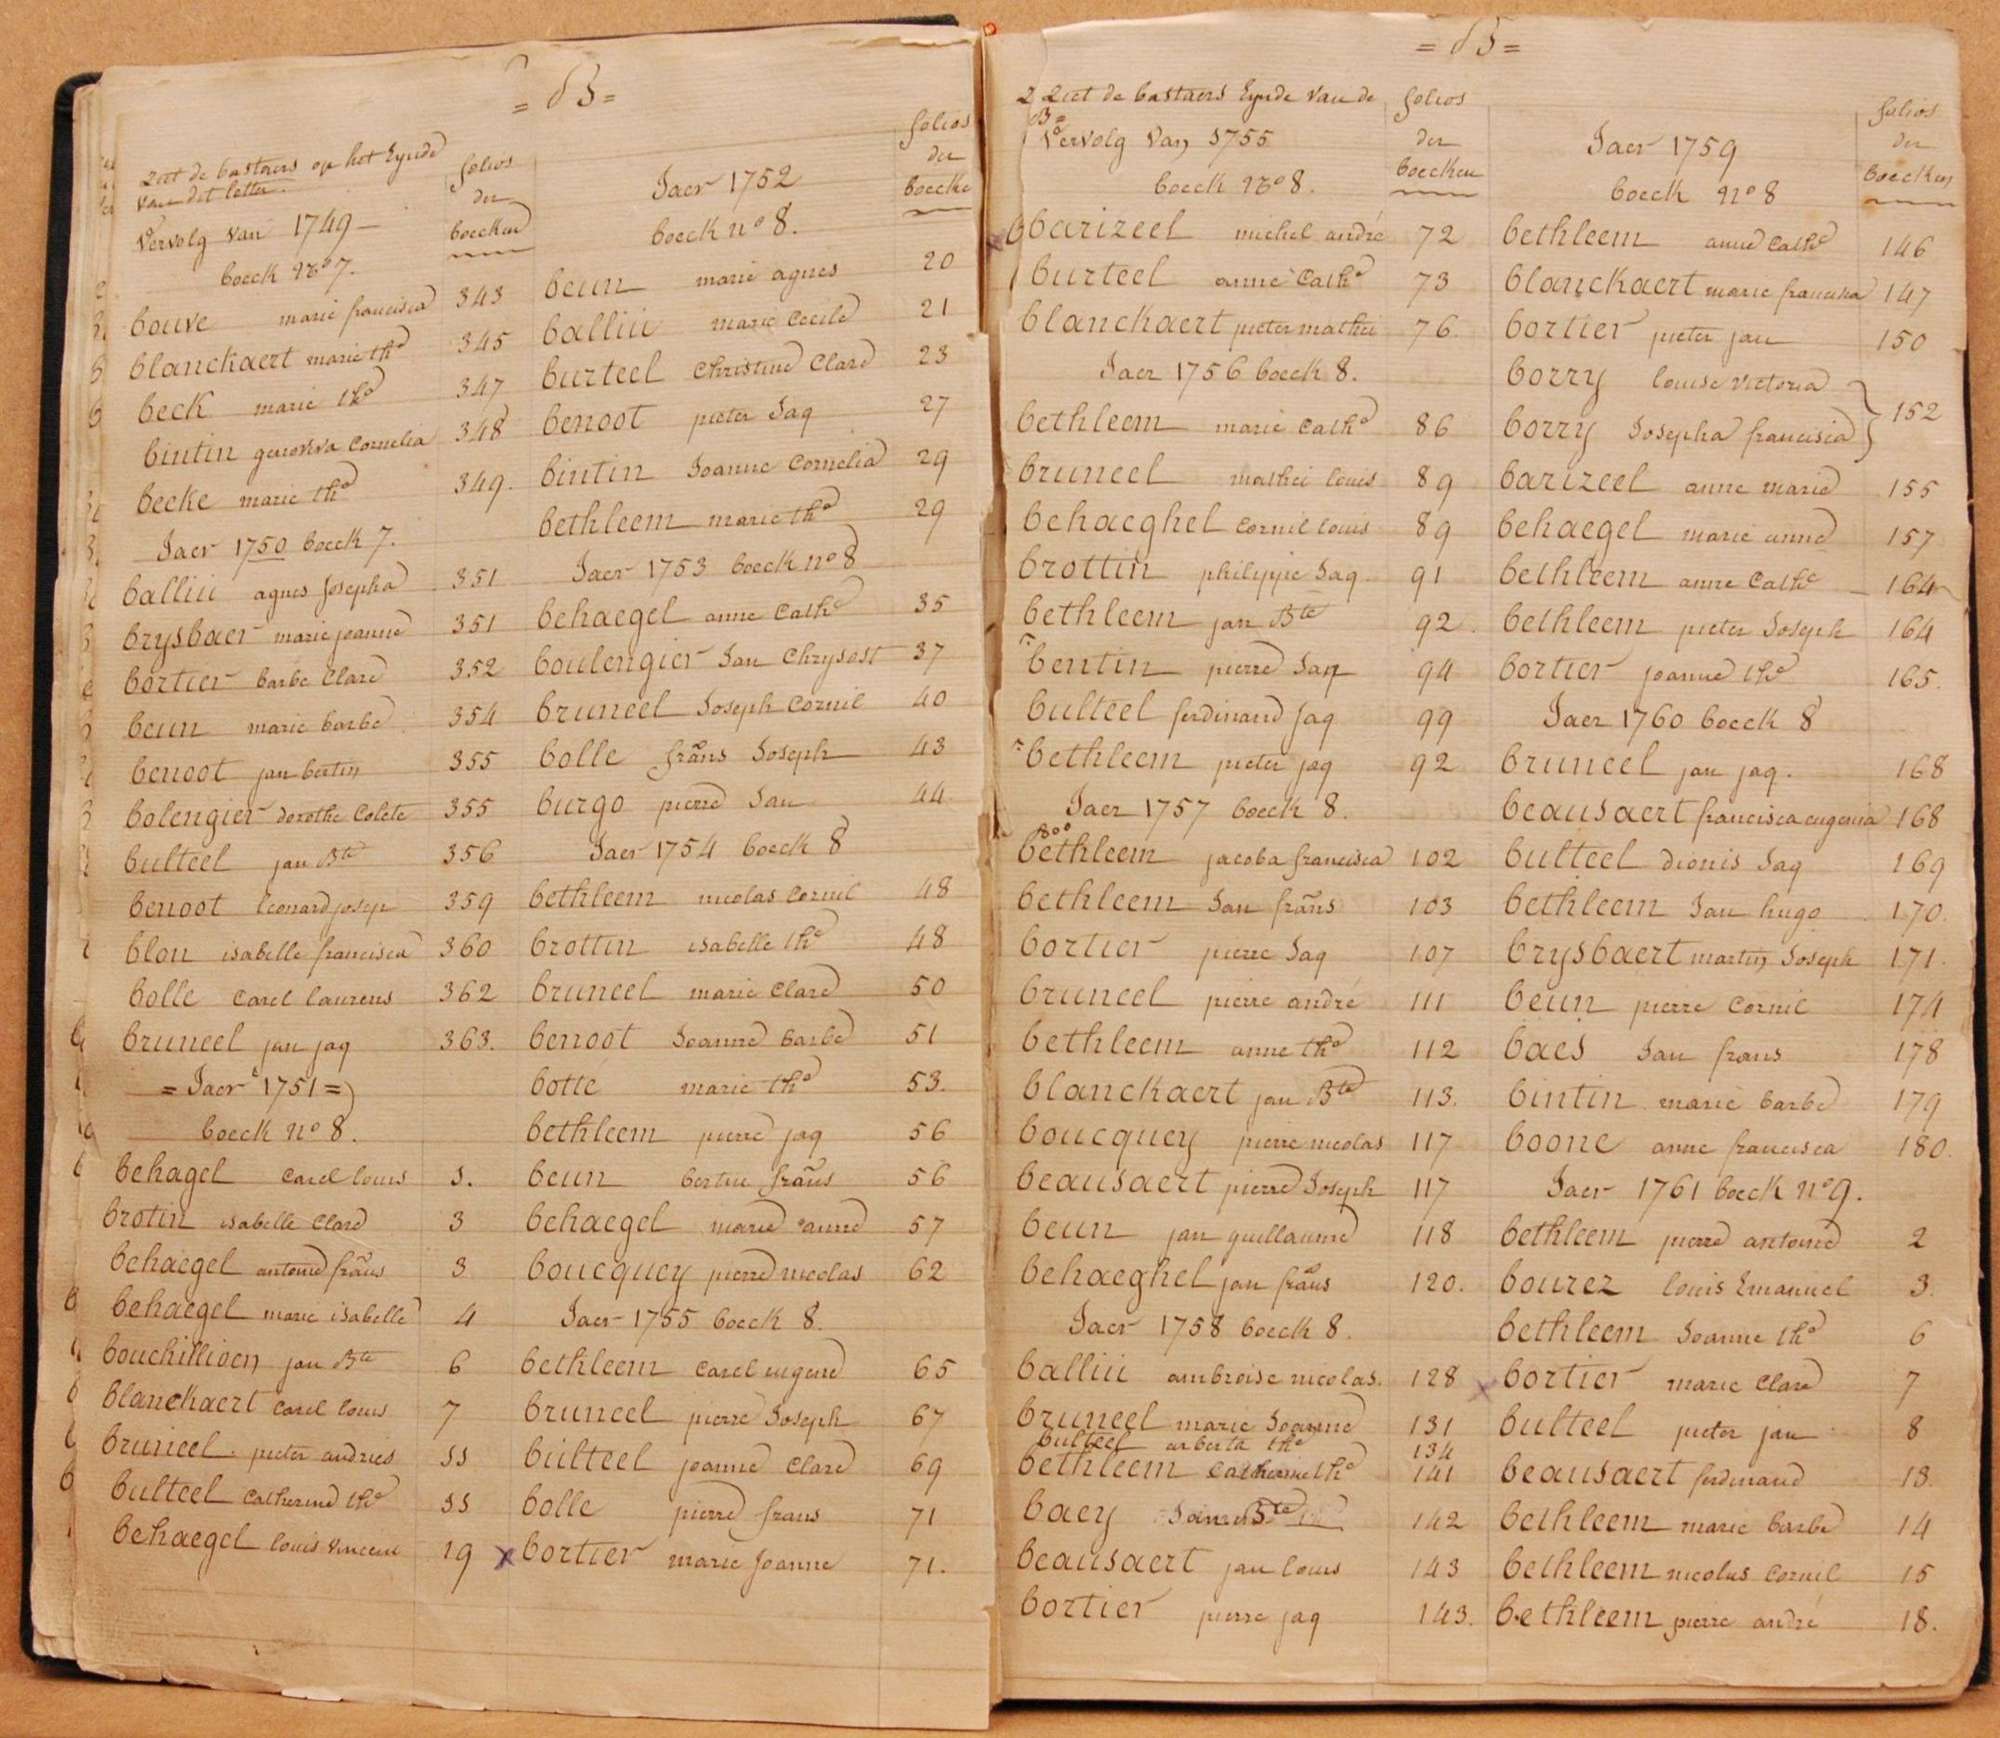 = B =
Ziet de bastaers op het Eynde
van dit letter.
Vervolg van 1749 —
boeck No 7.
folios
der
boecken
bouve marie francisca 343
blanckaert marie the 345
beck marie the 347
bintin genoviva Cornelia 348
becke marie the 349.
Jaer 1750 boeck 7.
balliu agnes Josepha 351
brysbaer marie joanne 351
bortier barbe Clare 352
beun marie barbe 354
benoot jan bertin 355
bolengier dorothe Colete 355
bulteel jan Bte 356
benoot Leonard josep 359
blon isabelle francisca 360
bolle Carel laurens 362
bruneel jan jaq 363.
= Jaer 1751 =
boeck no 8.
behagel Carel louis 1.
brotin isabelle Clare 3
behaegel antoine frans 3
behaegel marie isabelle 4
bouchillioen jan Bte 6
blanckaert Carel louis 7
bruneel pieter andries 11
bulteel Catherine the 11
behaegel louis vincent 19
Jaer 1752
boeck no 8.
folios
der
boecke
beun marie agnes 20
balliu marie Cecile 21
burteel Christine Clare 23
benoot pieter Jaq 27
bintin Joanne Cornelia 29
bethleem marie the 29
Jaer 1753 boeck no 8
behaegel anne Cathe 35
boulengier Jan Chrysost 37
bruneel Joseph Cornil 40
bolle frans Joseph 43
burgo pierre Jan 44
Jaer 1754 boeck 8
bethleem nicolas Cornil 48
brottin isabelle the 48
bruneel marie Clare 50
benoot Joanne barbe 51
botte marie the 53.
bethleem pierre jaq 56
beun bertin frans 56
behaegel marie anne 57
boucquey pierre nicolas 62
Jaer 1755 boeck 8.
bethleem Carel eugene 65
bruneel pierre Joseph 67
bulteel joanne Clare 69
bolle pierre frans 71
x bortier marie Joanne 71.
= B =
Ziet de bastaers Eynde van de
B =
Vervolg van 1755
boeck No 8.
folios
der
boecken
barizeel michel andré 72
burteel anne Cathe 73
blanckaert pieter mathei 76.
Jaer 1756 boeck 8.
bethleem marie Cathe 86
bruneel mathei louis 89
behaeghel Cornil louis 89
brottin philippe Jaq 91
bethleem jan Bte 92.
bentin pierre Jaq 94
bulteel ferdinand Jaq 99
bethleem pieter jaq 92
Jaer 1757 boeck 8.
bethleem jacoba francisca 102
bethleem Jan frans 103
bortier pierre Jaq 107
bruneel pierre andré 111
bethleem anne the 112
blanckaert jan Bte 113.
boucquey pierre nicolas 117
beausaert pierre Joseph 117
beun jan guillaume 118
behaeghel jan frans 120.
Jaer 1758 boeck 8.
balliu ambroise nicolas. 128
bruneel marie Joanne 131
bulteel arberta the 134
bethleem Catherine the 141
baey Bte 142
beausaert jan louis 143
bortier pierre jaq 143.
Jaer 1759
boeck no 8
folios
der
boecken
bethleem anne Cathe 146
blanckaert marie francisca 147
bortier pieter jan 150
borry louise victoria
borry Josepha francisca } 152
barizeel anne marie 155
behaegel marie anne 157
bethleem anne Cathe 164
bethleem pieter Joseph 164
bortier joanne the 165.
Jaer 1760 boeck 8
bruneel jan jaq. 168
beausaert francisca eugenia 168
bulteel dionis Jaq 169
bethleem Jan hugo 170.
brysbaert martin Joseph 171.
beun pierre Cornil 174
baes Jan frans 178
bintin marie barbe 179
boone anne francisca 180.
Jaer 1761 boeck no 9.
bethleem pierre antoine 2
bourez louis Emanuel 3.
bethleem Joanne the 6
x bortier marie Clare 7
bulteel pieter jan 8
beausaert ferdinand 13.
bethleem marie barbe 14
bethleem nicolas Cornil 15
bethleem pierre andré 18.